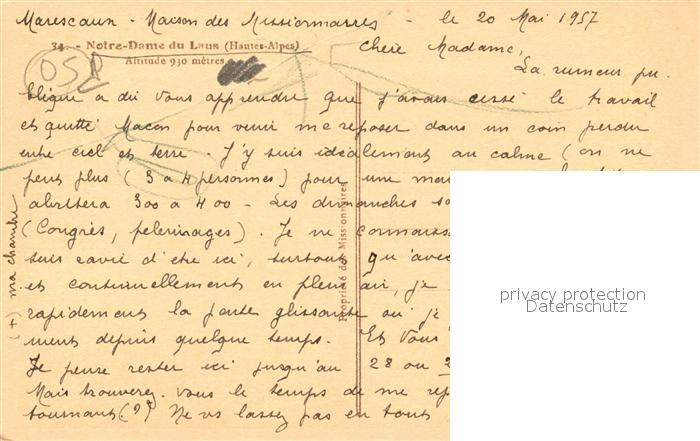 Marescaux - Maison des Missionnaires - le 20 Mai 1957
34. - Notre-Dame du Laus (Hautes-Alpes)
Altitude 930 mètres
OSP
Chère Madame,
La rumeur pu-
blique a dû vous apprendre que j'avais cessé le travail
et quitté Macon pour venir me reposer dans un coin perdu
entre ciel et terre. J'y suis idéalement au calme (on ne
peut plus (3 à 4 personnes) pour une
abritera 300 à 400 - Les dimanches
(Congrès, pèlerinages). Je ne
suis ravie d'être ici, surtout qu'avec
et continuellement en plein air, je
rapidement la pente glissante où je
ments depuis quelque temps. Et vous
Je pense rester ici jusqu'au 28 ou
Mais trouverez-vous le temps de me
tournant (?) Ne vs lassez pas en tout
(+) ma chambre
Propriété des Missionnaires
privacy protection
Datenschutz